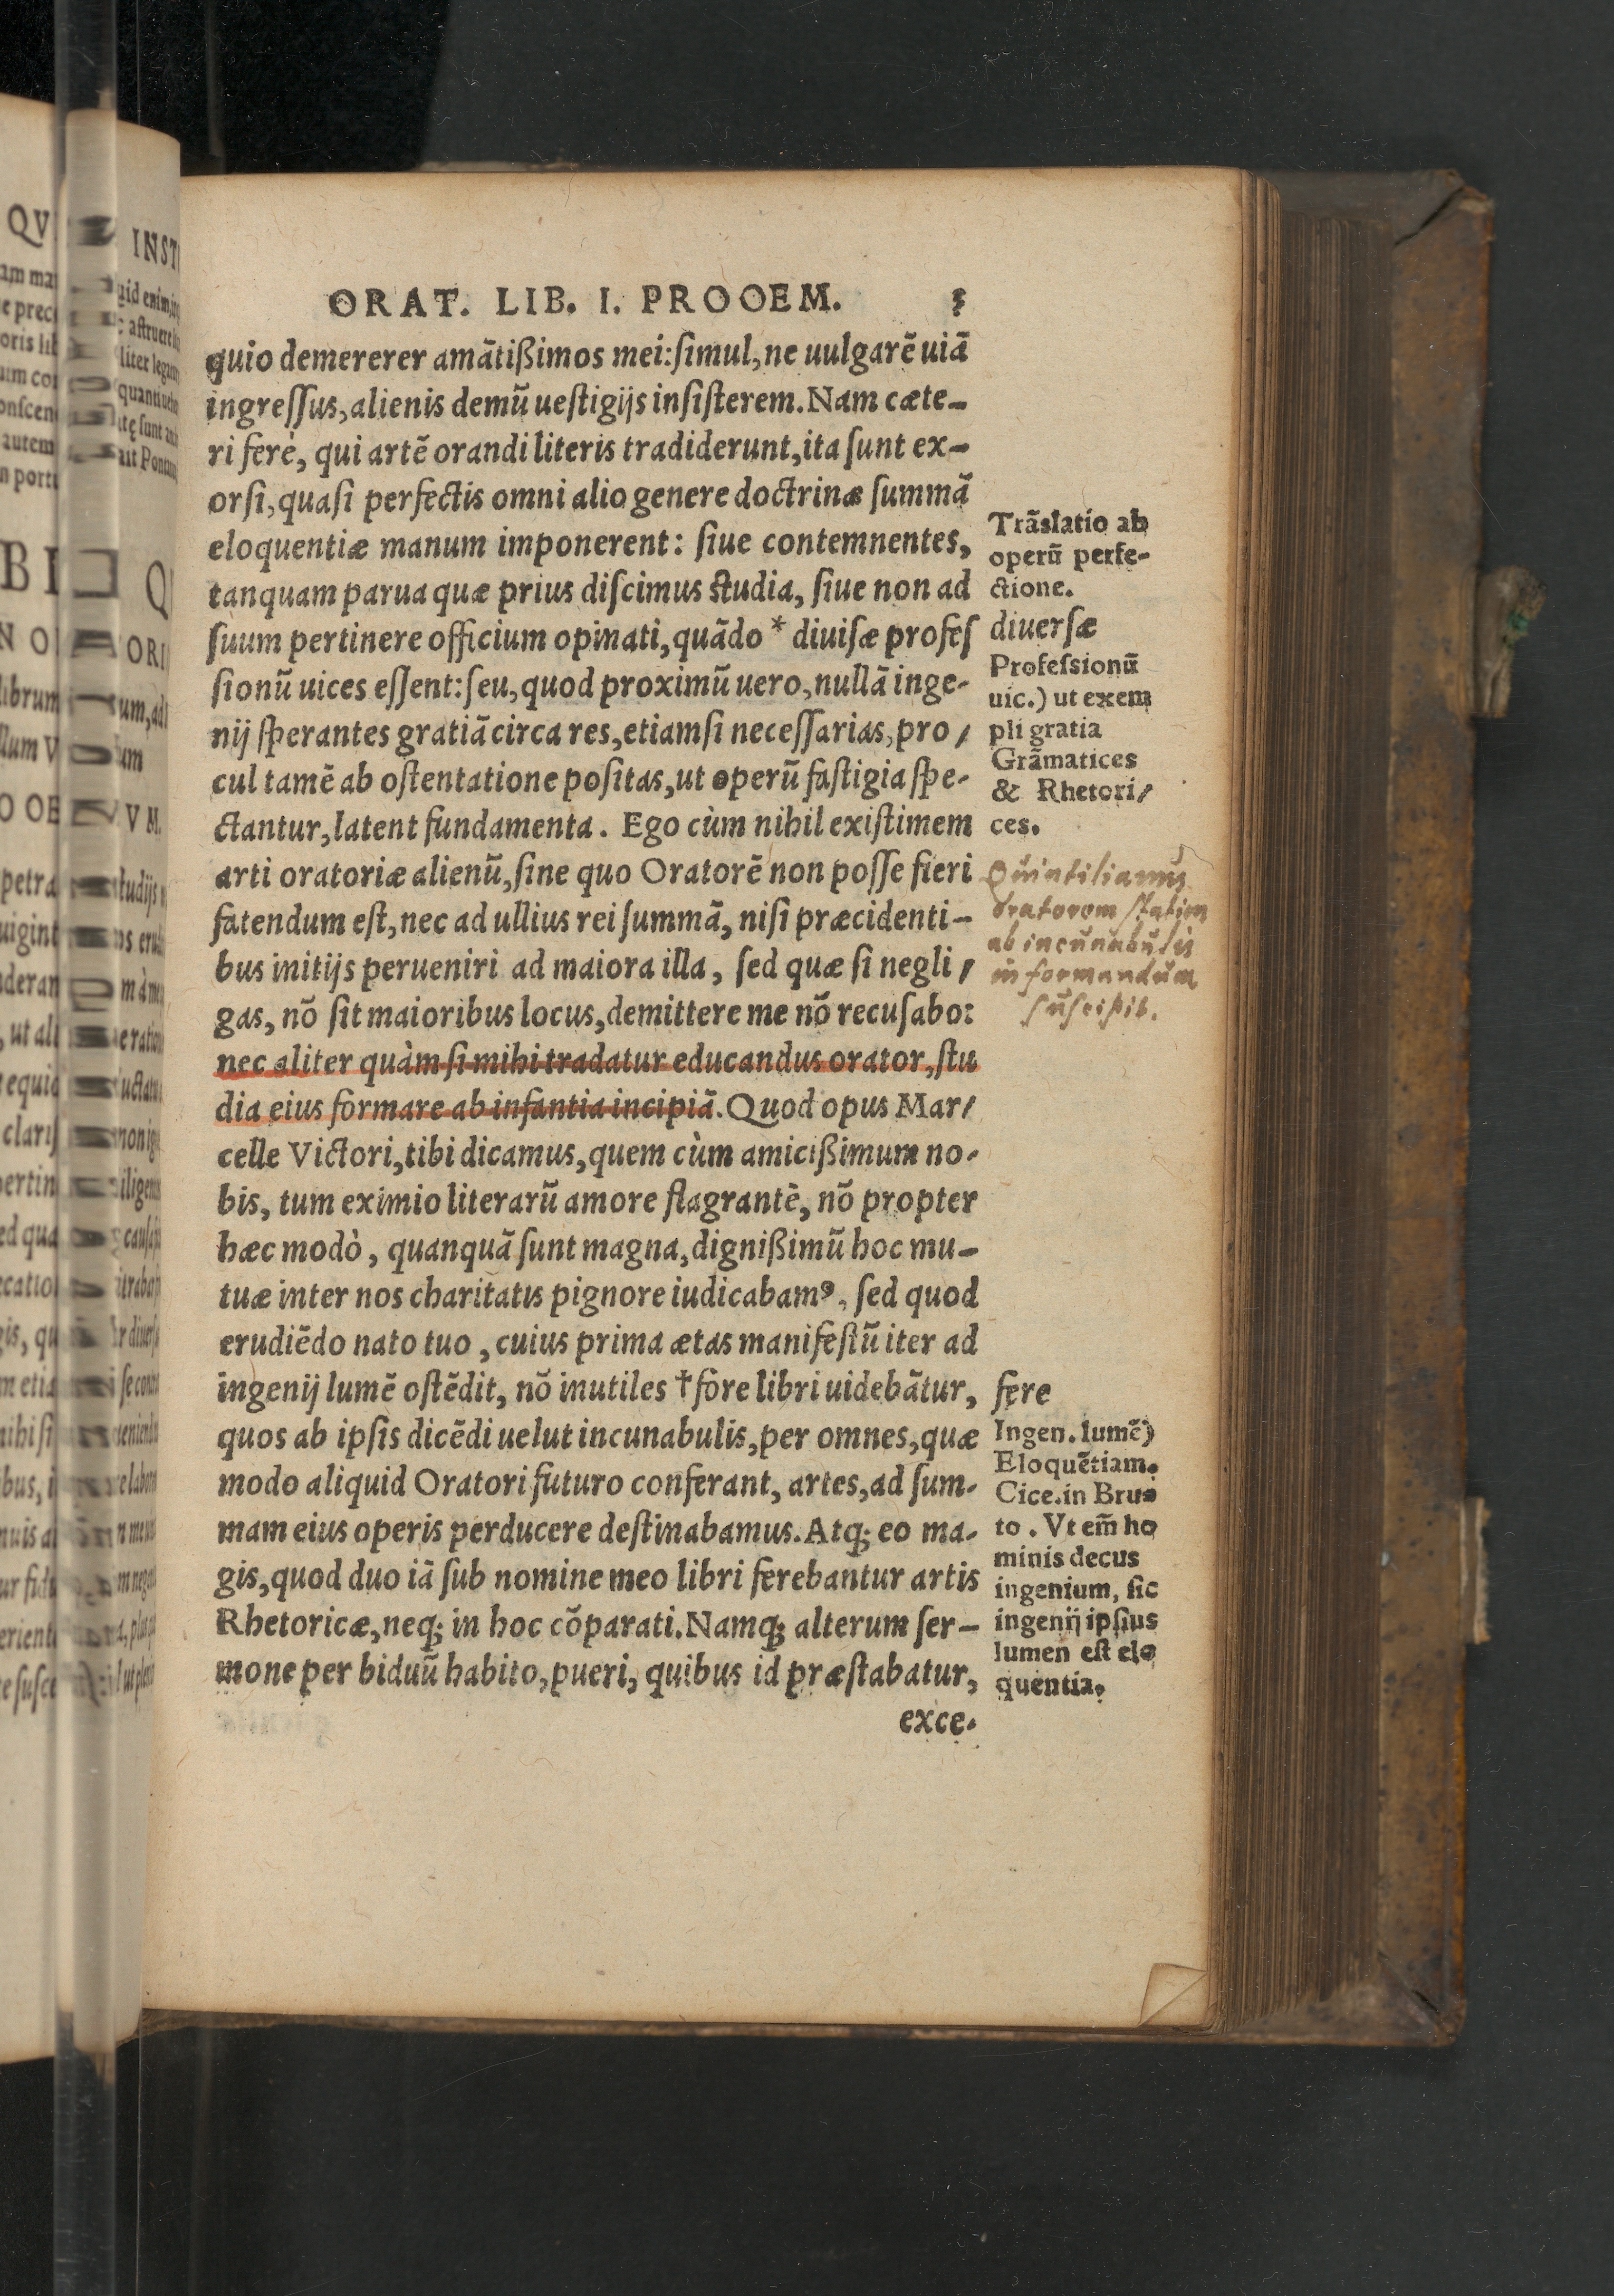 ORAT. LIB. I. PROOEM. 5
quio demererer amãtißimos mei:ſimul, ne uulgarẽ uiã
ingreſſus, alienis demũ ueſtigijs inſiſterem. Nam cæte-
ri ferè, qui artẽ orandi literis tradiderunt, ita ſunt ex-
orſi, quaſi perfectis omni alio genere doctrinæ ſummã
eloquentiæ manum imponerent: ſiue contemnentes,
tanquam parua quæ prius diſcimus ſtudia, ſiue non ad
ſuum pertinere officium opinati, quãdo * diuiſæ profeſ
ſionũ uices eſſent: ſeu, quod proximũ uero, nullã inge-
nij ſperantes gratiã circa res, etiamſi neceſſarias, pro/
cul tamẽ ab oſtentatione poſitas, ut operũ faſtigia ſpe-
ctantur, latent fundamenta. Ego cùm nihil exiſtimem
arti oratoriæ alienũ, ſine quo Oratorẽ non poſſe fieri
fatendum eſt, nec ad ullius rei ſummã, niſi præcidenti-
bus initijs perueniri ad maiora illa, ſed quæ ſi negli/
gas, nõ ſit maioribus locus, demittere me nõ recuſabo:
nec aliter quàm ſi mihi tradatur educandus orator, ſtu
dia eius formare ab infantia incipiã. Quod opus Mar/
celle Victori, tibi dicamus, quem cùm amicißimum no-
bis, tum eximio literarũ amore flagrantẽ, nõ propter
hæc modò, quanquã ſunt magna, dignißimũ hoc mu-
tuæ inter nos charitatis pignore iudicabamꝰ, ſed quod
erudiẽdo nato tuo, cuius prima ætas manifeſtũ iter ad
ingenij lumẽ oſtẽdit, nõ inutiles † fore libri uidebãtur,
quos ab ipſis dicẽdi uelut incunabulis, per omnes, quæ
modo aliquid Oratori futuro conferant, artes, ad ſum-
mam eius operis perducere deſtinabamus. Atq; eo ma-
gis, quod duo iã ſub nomine meo libri ferebantur artis
Rhetoricæ, neq; in hoc cõparati. Namq; alterum ſer-
mone per biduũ habito, pueri, quibus id præſtabatur,
exce-
Trãslatio ab
operũ perfe-
ctione.
diuerſæ
Profeſsionũ
uic.) ut exem
pli gratia
Grãmatices
& Rhetori/
ces.
Quintilianus
oratorem ſtatim
ab incunabulis
informandum
ſuſcipit.
fere
Ingen. lumẽ)
Eloquẽtiam.
Cice. in Bru-
to. Vt em̃ ho
minis decus
ingenium, ſic
ingenij ipſius
lumen eſt elo
quentia.